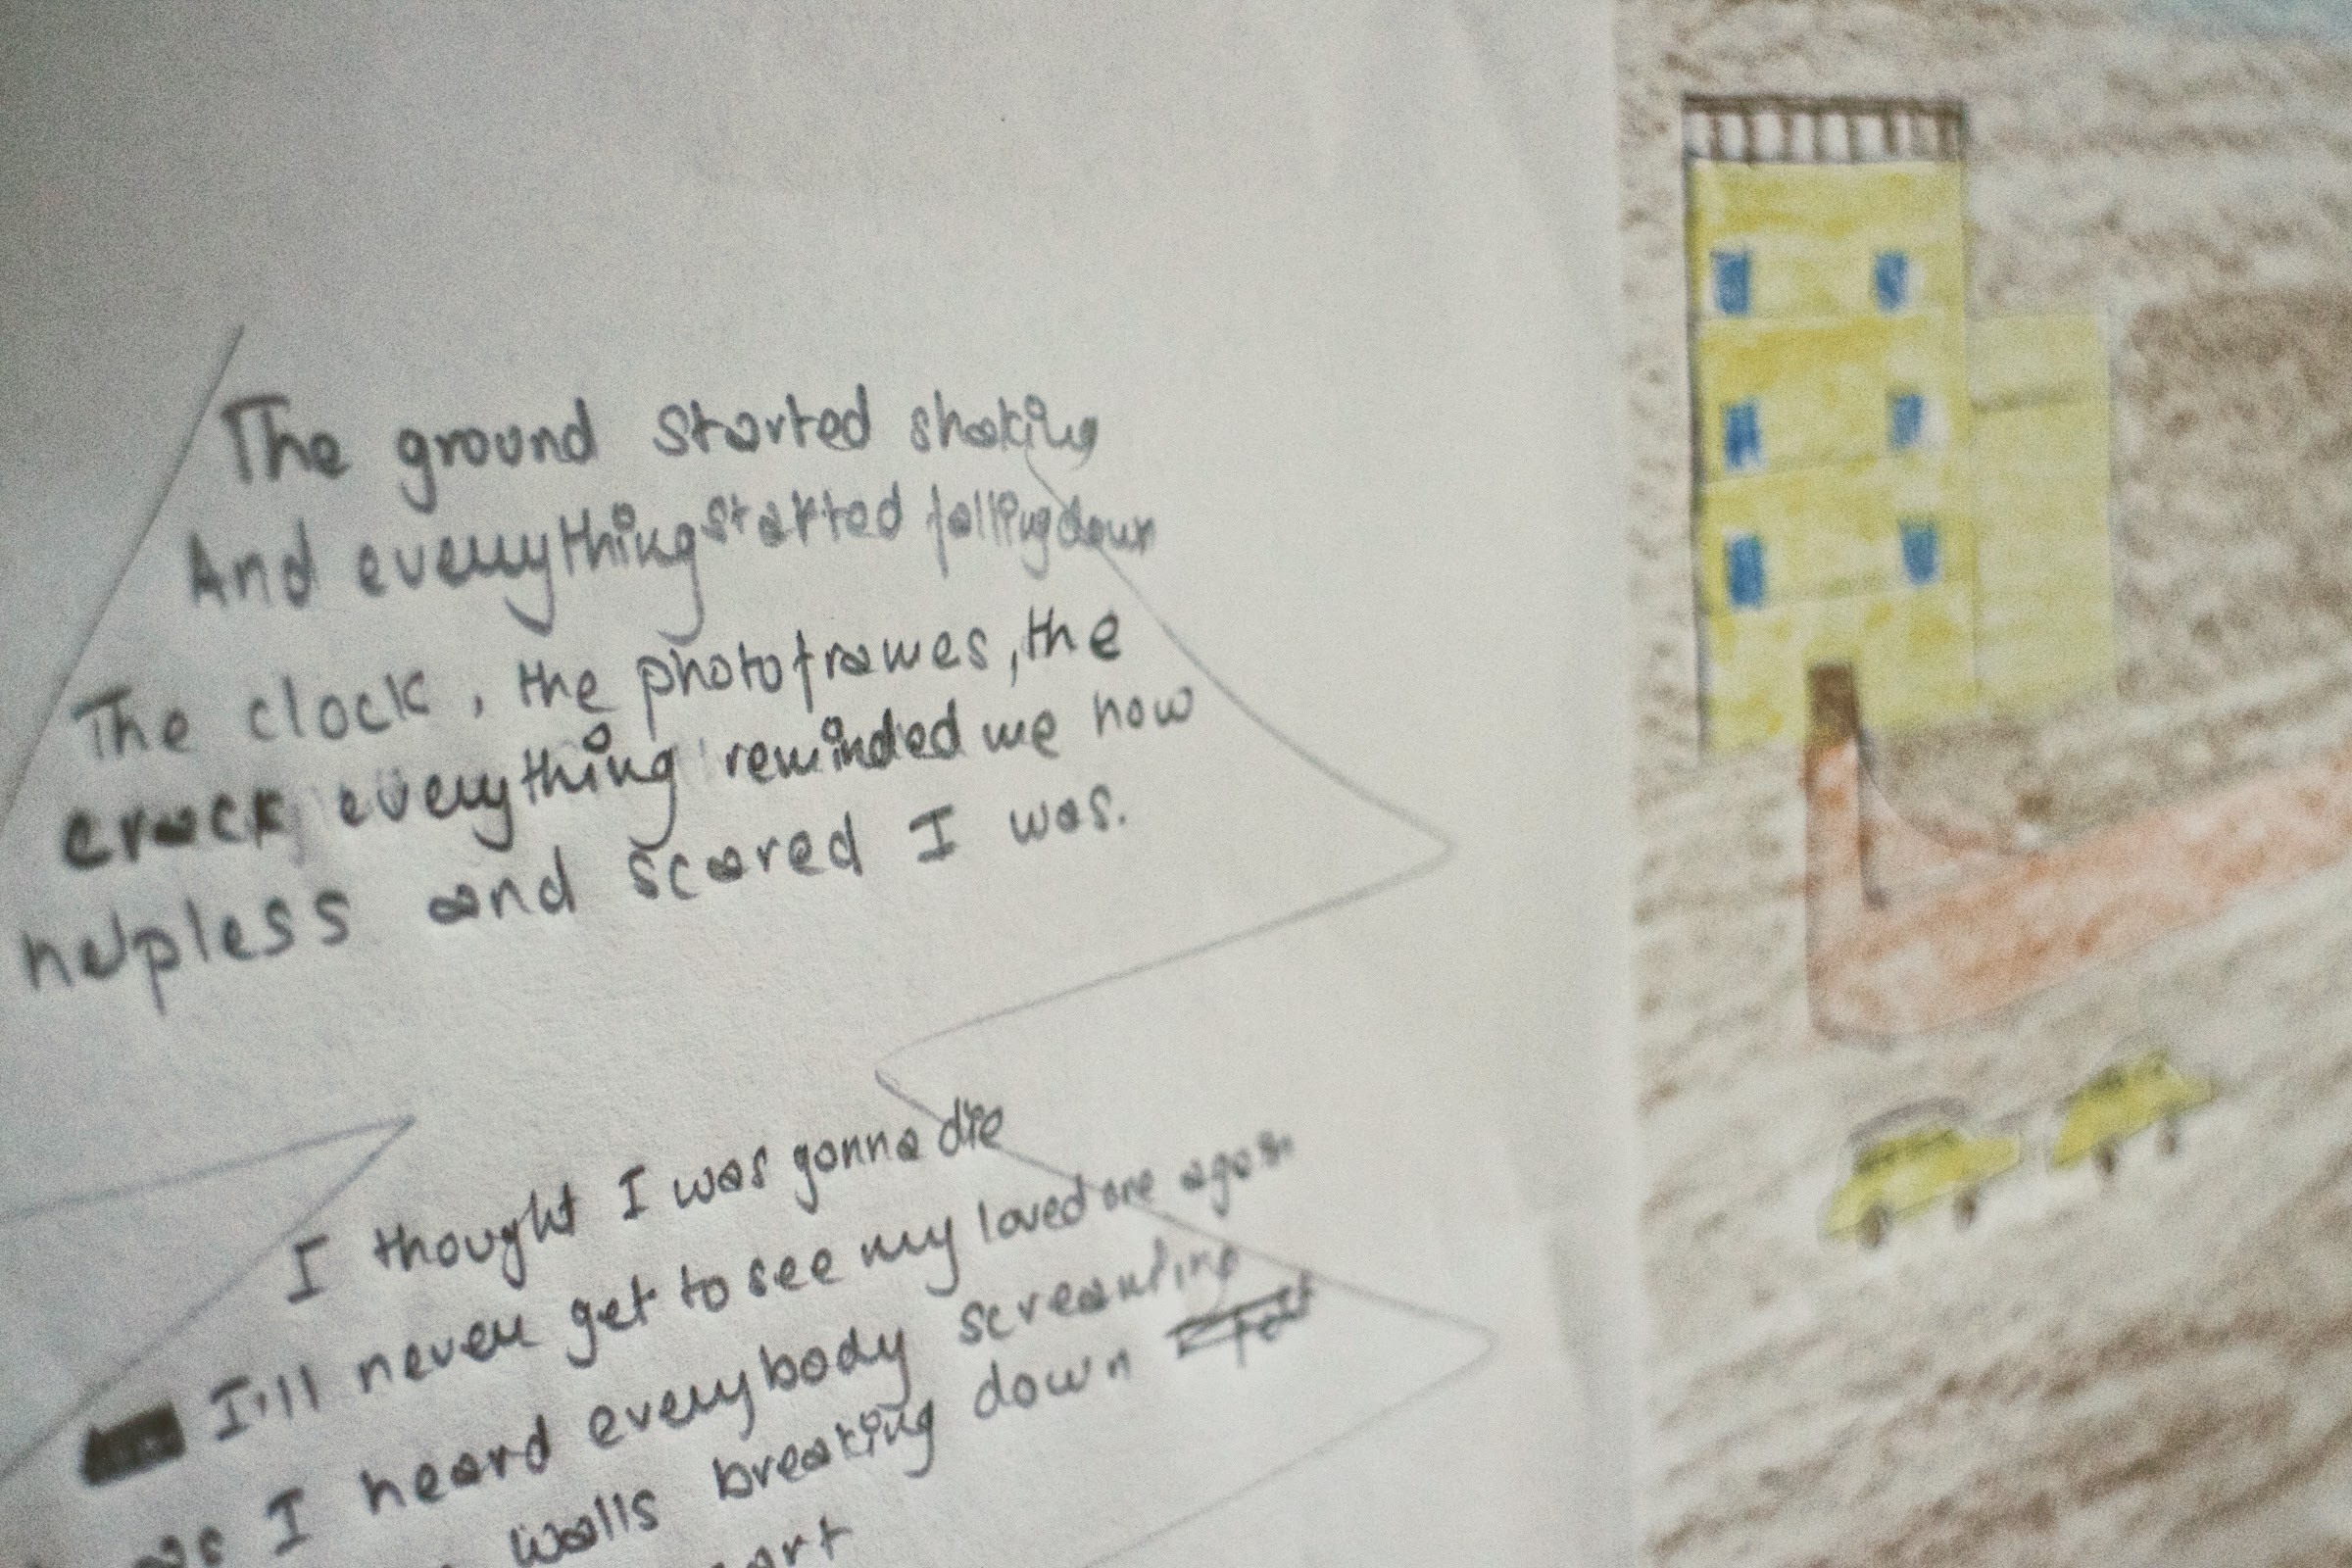 The ground started shaking
And everything started falling down
The clock, the photoframes, the
crack everything reminded me how
helpless and scared I was.
I thought I was gonna die
I'll never get to see my loved one again
as I heard everybody screaming
walls breaking down